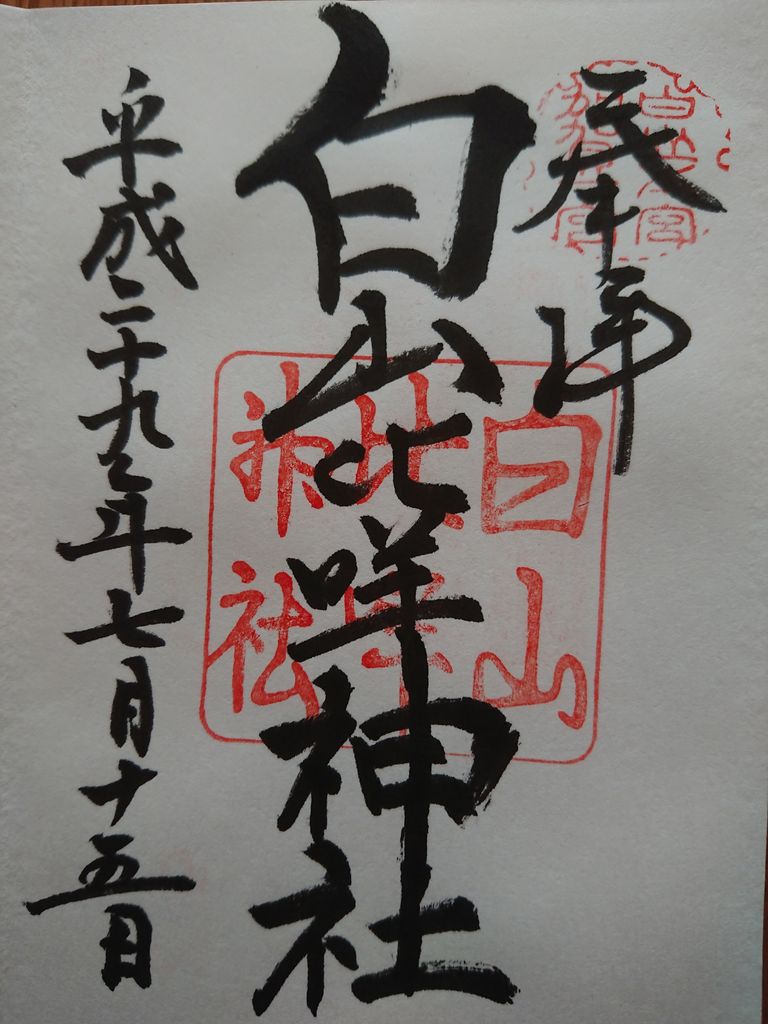 奉拝
白山比咩神社
白山
比咩
神社
平成二十九年七月十五日